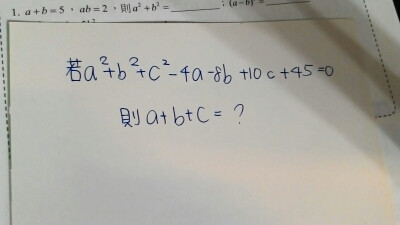 1. a+b=5，ab=2，則a²+b²=________；(a-b)²=
若a²+b²+c²-4a-8b+10c+45=0
則a+b+c=？